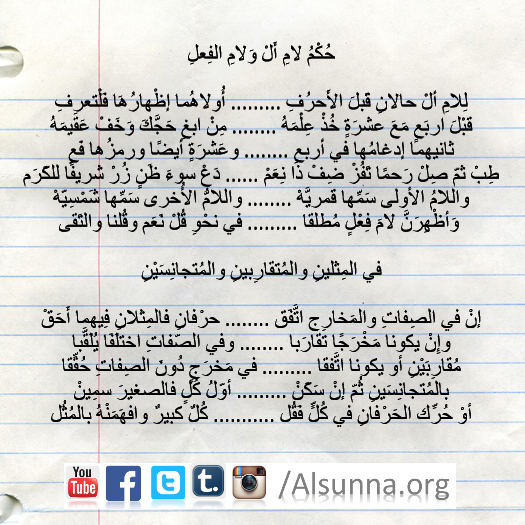 حُكْمُ لامِ أَلْ وَلامِ الفِعلِ
لِلامِ ألْ حالانِ قبلَ الأَحرُفِ ......... أُولاهُما إظْهارُهَا فَلْتَعرِفِ
قبْلَ اربَعٍ مَعَ عشرَةٍ خُذْ عِلْمَهُ ........ مِنْ ابغِ حَجَّكَ وَخَفْ عَقِيمَهُ
ثانيهِما إدغامُها في أربعِ ........ وعَشْرَةٍ أيضًا ورمزُها فعِ
طِبْ ثمّ صِلْ رَحمًا تَفُزْ ضِفْ ذا نِعَمْ ...... دَعْ سوءَ ظَنٍ زُرْ شريفًا للكَرَم
واللامُ الأولى سَمِّها قمريّهْ ........ واللامُ الأخرى سَمِّها شَمْسِيّهْ
وَأظْهِرَنَّ لامَ فِعْلٍ مُطلقا ......... في نحْوِ قُلْ نَعَم وقُلنا والتَقى
في المِثلينِ والمُتقاربينِ والمُتجانِسَيْنِ
إنْ في الصِفاتِ والمَخارِجِ اتَّفَق ........ حرْفانِ فالمِثلانِ فِيهِما أَحَقْ
وإنْ يكونا مَخْرَجًا تقارَبا ........ وفي الصّفاتِ اختَلَفا يُلَقَّبا
مُقارِبَيْنِ أو يكونا اتَّفقا ......... في مَخْرَجٍ دُونَ الصفاتِ حُقِّقا
بالمُتجانِسَينِ ثُمّ إنْ سَكَنْ ......... أوّلُ كُلٍّ فالصغيرَ سمِيَنْ
أوْ حُرِّكَ الحَرْفانِ في كُلٍّ فقُل ........... كُلٌّ كبيرٌ وافهَمَنْهُ بالمُثُل
You Tube f t t. /Alsunna.org